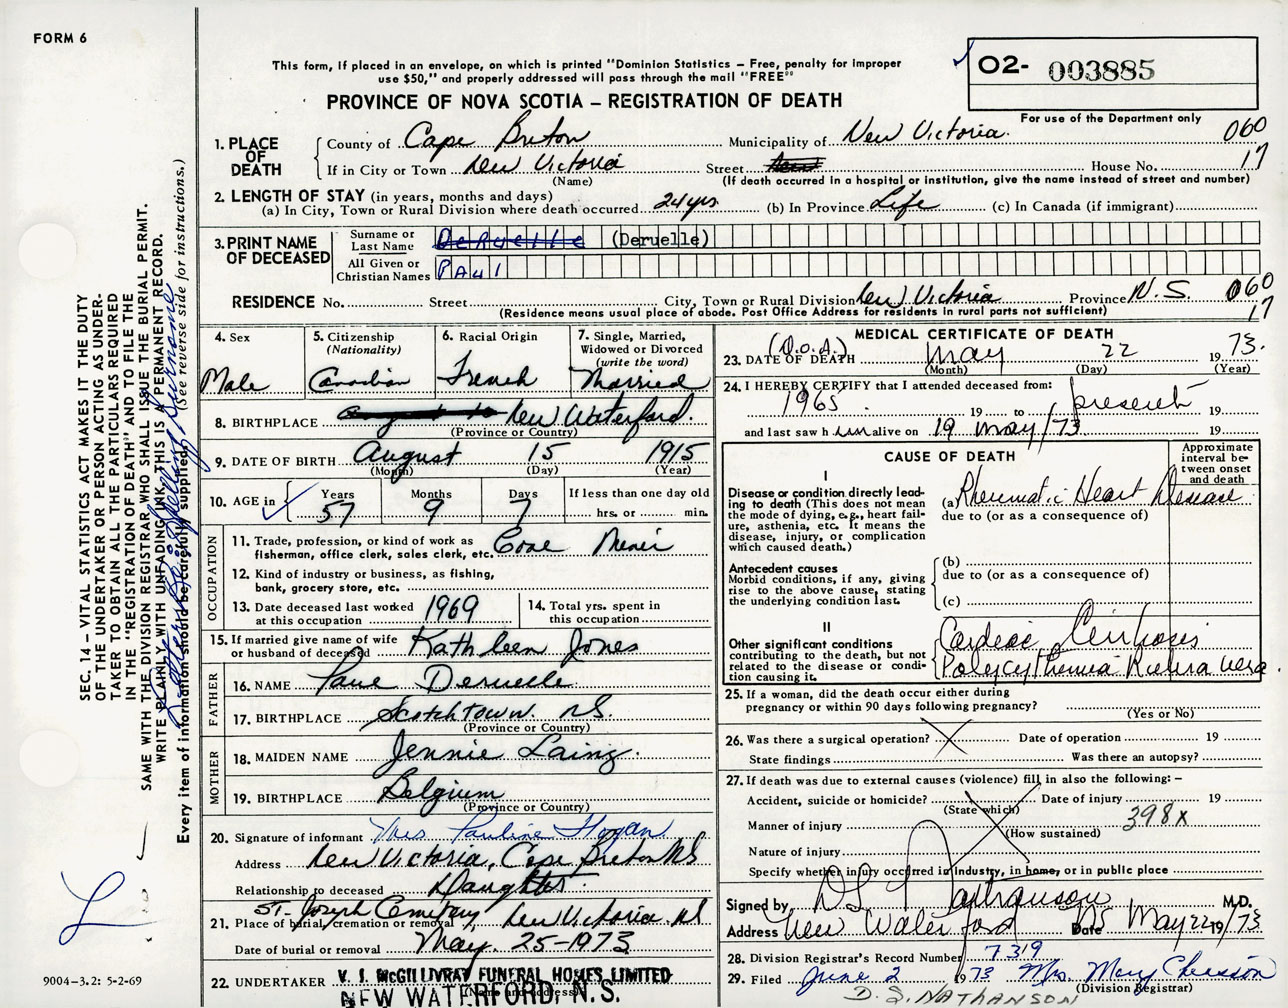 FORM 6
This form, if placed in an envelope, on which is printed "Dominion Statistics – Free, penalty for improper
use $50," and properly addressed will pass through the mail "FREE"
O2- 003885
For use of the Department only
PROVINCE OF NOVA SCOTIA – REGISTRATION OF DEATH
1. PLACE OF DEATH County of Cape Breton Municipality of New Victoria. 060
If in City or Town New Victoria Street House No. 17
(Name) (If death occurred in a hospital or institution, give the name instead of street and number)
2. LENGTH OF STAY (in years, months and days)
(a) In City, Town or Rural Division where death occurred 24 yrs (b) In Province Life (c) In Canada (if immigrant)
3. PRINT NAME OF DECEASED Surname or Last Name DeRuelle (Deruelle)
All Given or Christian Names PAul
RESIDENCE No. Street City, Town or Rural Division New Victoria Province N.S. 060
(Residence means usual place of abode. Post Office Address for residents in rural parts not sufficient) 17
4. Sex Male
5. Citizenship (Nationality) Canadian
6. Racial Origin French
7. Single, Married, Widowed or Divorced (write the word) Married
8. BIRTHPLACE New Waterford.
(Province or Country)
9. DATE OF BIRTH August 15 1915
(Month) (Day) (Year)
10. AGE in Years 57 Months 9 Days 7 If less than one day old hrs. or min.
OCCUPATION
11. Trade, profession, or kind of work as
fisherman, office clerk, sales clerk, etc.
12. Kind of industry or business, as fishing,
bank, grocery store, etc.
13. Date deceased last worked at this occupation 1969
14. Total yrs. spent in this occupation
15. If married give name of wife or husband of deceased Kathleen Jones
FATHER
16. NAME Paul Deruelle
17. BIRTHPLACE Scotchtown. N.S.
(Province or Country)
MOTHER
18. MAIDEN NAME Jennie Laing.
19. BIRTHPLACE Belgium
(Province or Country)
20. Signature of informant Mrs Pauline Hogan
Address New Victoria, Cape Breton NS
Relationship to deceased Daughter.
21. Place of burial, cremation or removal St. Joseph Cemetery, New Victoria. NS
Date of burial or removal May. 25-1973
22. UNDERTAKER V. J. McGILLIVRAY FUNERAL HOMES LIMITED
(Name and address)
NEW WATERFORD, N.S.
MEDICAL CERTIFICATE OF DEATH
(D.O.A.)
23. DATE OF DEATH May 22 1973.
(Month) (Day) (Year)
24. I HEREBY CERTIFY that I attended deceased from:
1965. 19 to present 19
and last saw him alive on 19 May/73 19
CAUSE OF DEATH
Approximate interval between onset and death
I
Disease or condition directly leading to death (This does not mean the mode of dying, e.g., heart failure, asthenia, etc. It means the disease, injury, or complication which caused death.)
(a) Rheumatic Heart Disease
due to (or as a consequence of)
Antecedent causes
Morbid conditions, if any, giving rise to the above cause, stating the underlying condition last.
(b)
due to (or as a consequence of)
(c)
II
Other significant conditions
contributing to the death, but not related to the disease or condition causing it.
Cardiac Cirrhosis
Polycythemia Rubra Vera.
25. If a woman, did the death occur either during
pregnancy or within 90 days following pregnancy?
(Yes or No)
26. Was there a surgical operation? Date of operation 19
State findings Was there an autopsy?
27. If death was due to external causes (violence) fill in also the following: –
Accident, suicide or homicide? Date of injury 19
(State which)
Manner of injury 398x
(How sustained)
Nature of injury
Specify whether injury occurred in industry, in home, or in public place
Signed by D S Nathanson M.D.
Address New Waterford NS Date May 22 19/73
28. Division Registrar's Record Number 7319
29. Filed June 2 1973 Mrs. Mary
(Division Registrar)
D. S. NATHANSON
SEC. 14 – VITAL STATISTICS ACT MAKES IT THE DUTY
OF THE UNDERTAKER OR PERSON ACTING AS UNDER-
TAKER TO OBTAIN ALL THE PARTICULARS REQUIRED
IN THE "REGISTRATION OF DEATH" AND TO FILE THE
SAME WITH THE DIVISION REGISTRAR WHO SHALL ISSUE THE BURIAL PERMIT.
WRITE PLAINLY WITH UNFADING INK THIS IS A PERMANENT RECORD.
Every item of information should be carefully supplied. (See reverse side for instructions.)
9004–3.2: 5-2-69